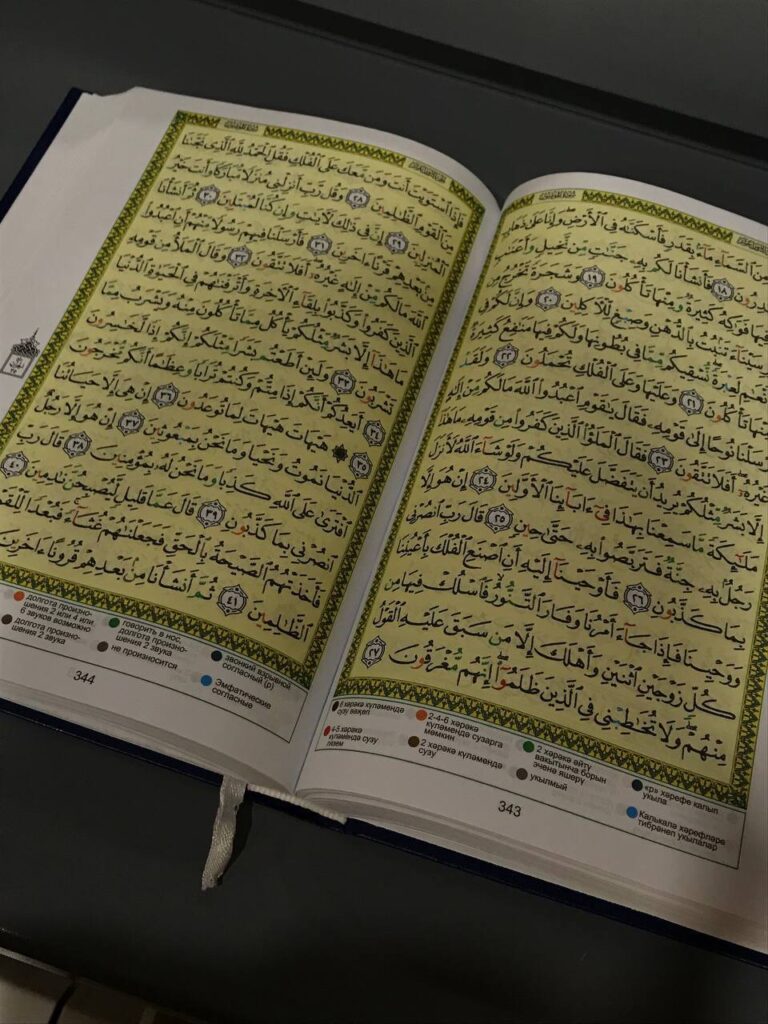 مِنَ السَّمَاءِ مَاءً بِقَدَرٍ فَأَسْكَنَّٰهُ فِي الْأَرْضِ وَإِنَّا عَلَىٰ ذَهَابٍ
١٨ فَأَنشَأْنَا لَكُم بِهِ جَنَّٰتٍ مِّن نَّخِيلٍ وَأَعْنَٰبٍ
فِيهَا فَوَٰكِهُ كَثِيرَةٌ وَمِنْهَا تَأْكُلُونَ ١٩ وَشَجَرَةً تَخْرُجُ مِن
سَيْنَاءَ تَنبُتُ بِالدُّهْنِ وَصِبْغٍ لِّلْآكِلِينَ ٢٠ وَإِنَّ لَكُمْ فِي
لَعِبْرَةً نُّسْقِيكُم مِّمَّا فِي بُطُونِهَا وَلَكُمْ فِيهَا مَنَٰفِعُ كَثِيرَةٌ
تَأْكُلُونَ ٢١ وَعَلَيْهَا وَعَلَى الْفُلْكِ تُحْمَلُونَ ٢٢ وَلَقَدْ
نُوحًا إِلَىٰ قَوْمِهِ فَقَالَ يَٰقَوْمِ اعْبُدُوا اللَّهَ مَا لَكُم مِّنْ إِلَٰهٍ
غَيْرُهُ أَفَلَا تَتَّقُونَ ٢٣ فَقَالَ الْمَلَؤُا الَّذِينَ كَفَرُوا مِن قَوْمِهِ مَا هَٰذَا
إِلَّا بَشَرٌ مِّثْلُكُمْ يُرِيدُ أَن يَتَفَضَّلَ عَلَيْكُمْ وَلَوْ شَاءَ اللَّهُ لَأَنزَلَ
مَلَٰئِكَةً مَّا سَمِعْنَا بِهَٰذَا فِي ءَابَائِنَا الْأَوَّلِينَ ٢٤ إِنْ هُوَ إِلَّا
رَجُلٌ بِهِ جِنَّةٌ فَتَرَبَّصُوا بِهِ حَتَّىٰ حِينٍ ٢٥ قَالَ رَبِّ انصُرْنِي
بِمَا كَذَّبُونِ ٢٦ فَأَوْحَيْنَا إِلَيْهِ أَنِ اصْنَعِ الْفُلْكَ بِأَعْيُنِنَا
وَوَحْيِنَا فَإِذَا جَاءَ أَمْرُنَا وَفَارَ التَّنُّورُ فَاسْلُكْ فِيهَا مِن
كُلٍّ زَوْجَيْنِ اثْنَيْنِ وَأَهْلَكَ إِلَّا مَن سَبَقَ عَلَيْهِ الْقَوْلُ
مِنْهُمْ وَلَا تُخَٰطِبْنِي فِي الَّذِينَ ظَلَمُوا إِنَّهُم مُّغْرَقُونَ ٢٧
6 хәрәкә күләмендә сузу вәҗеп
2-4-6 хәрәкә күләмендә сузарга мөмкин
2 хәрәкә әйтү вакытынча борын эченә яшерү
«р» хәрефе калын укыла
4-5 хәрәкә күләмендә сузу лязем
2 хәрәкә күләмендә сузу
укылмый
Калькалә хәрефләре тибрәнеп укылалар
343
فَإِذَا اسْتَوَيْتَ أَنتَ وَمَن مَّعَكَ عَلَى الْفُلْكِ فَقُلِ الْحَمْدُ لِلَّهِ الَّذِي نَجَّىٰنَا
مِنَ الْقَوْمِ الظَّٰلِمِينَ ٢٨ وَقُل رَّبِّ أَنزِلْنِي مُنزَلًا مُّبَارَكًا وَأَنتَ خَيْرُ
الْمُنزِلِينَ ٢٩ إِنَّ فِي ذَٰلِكَ لَءَايَٰتٍ وَإِن كُنَّا لَمُبْتَلِينَ ٣٠ ثُمَّ أَنشَأْنَا
مِن بَعْدِهِمْ قَرْنًا ءَاخَرِينَ ٣١ فَأَرْسَلْنَا فِيهِمْ رَسُولًا مِّنْهُمْ أَنِ اعْبُدُوا
اللَّهَ مَا لَكُم مِّنْ إِلَٰهٍ غَيْرُهُ أَفَلَا تَتَّقُونَ ٣٢ وَقَالَ الْمَلَأُ مِن قَوْمِهِ
الَّذِينَ كَفَرُوا وَكَذَّبُوا بِلِقَاءِ الْءَاخِرَةِ وَأَتْرَفْنَٰهُمْ فِي الْحَيَوٰةِ الدُّنْيَا
مَا هَٰذَا إِلَّا بَشَرٌ مِّثْلُكُمْ يَأْكُلُ مِمَّا تَأْكُلُونَ مِنْهُ وَيَشْرَبُ مِمَّا
تَشْرَبُونَ ٣٣ وَلَئِنْ أَطَعْتُم بَشَرًا مِّثْلَكُمْ إِنَّكُمْ إِذًا لَّخَٰسِرُونَ
٣٤ أَيَعِدُكُمْ أَنَّكُمْ إِذَا مِتُّمْ وَكُنتُمْ تُرَابًا وَعِظَٰمًا أَنَّكُم مُّخْرَجُونَ
٣٥ هَيْهَاتَ هَيْهَاتَ لِمَا تُوعَدُونَ ٣٦ إِنْ هِيَ إِلَّا حَيَاتُنَا
الدُّنْيَا نَمُوتُ وَنَحْيَا وَمَا نَحْنُ بِمَبْعُوثِينَ ٣٧ إِنْ هُوَ إِلَّا رَجُلٌ
افْتَرَىٰ عَلَى اللَّهِ كَذِبًا وَمَا نَحْنُ لَهُ بِمُؤْمِنِينَ ٣٨ قَالَ رَبِّ
انصُرْنِي بِمَا كَذَّبُونِ ٣٩ قَالَ عَمَّا قَلِيلٍ لَّيُصْبِحُنَّ نَٰدِمِينَ ٤٠
فَأَخَذَتْهُمُ الصَّيْحَةُ بِالْحَقِّ فَجَعَلْنَٰهُمْ غُثَاءً فَبُعْدًا لِّلْقَوْمِ
الظَّٰلِمِينَ ٤١ ثُمَّ أَنشَأْنَا مِن بَعْدِهِمْ قُرُونًا ءَاخَرِينَ
долгота произно-
шения 2 или 4 или
6 звуков возможно
говорить в нос,
долгота произно-
шения 2 звука
звонкий взрывной
согласный (р)
долгота произно-
шения 2 звука
не произносится
Эмфатические
согласные
344